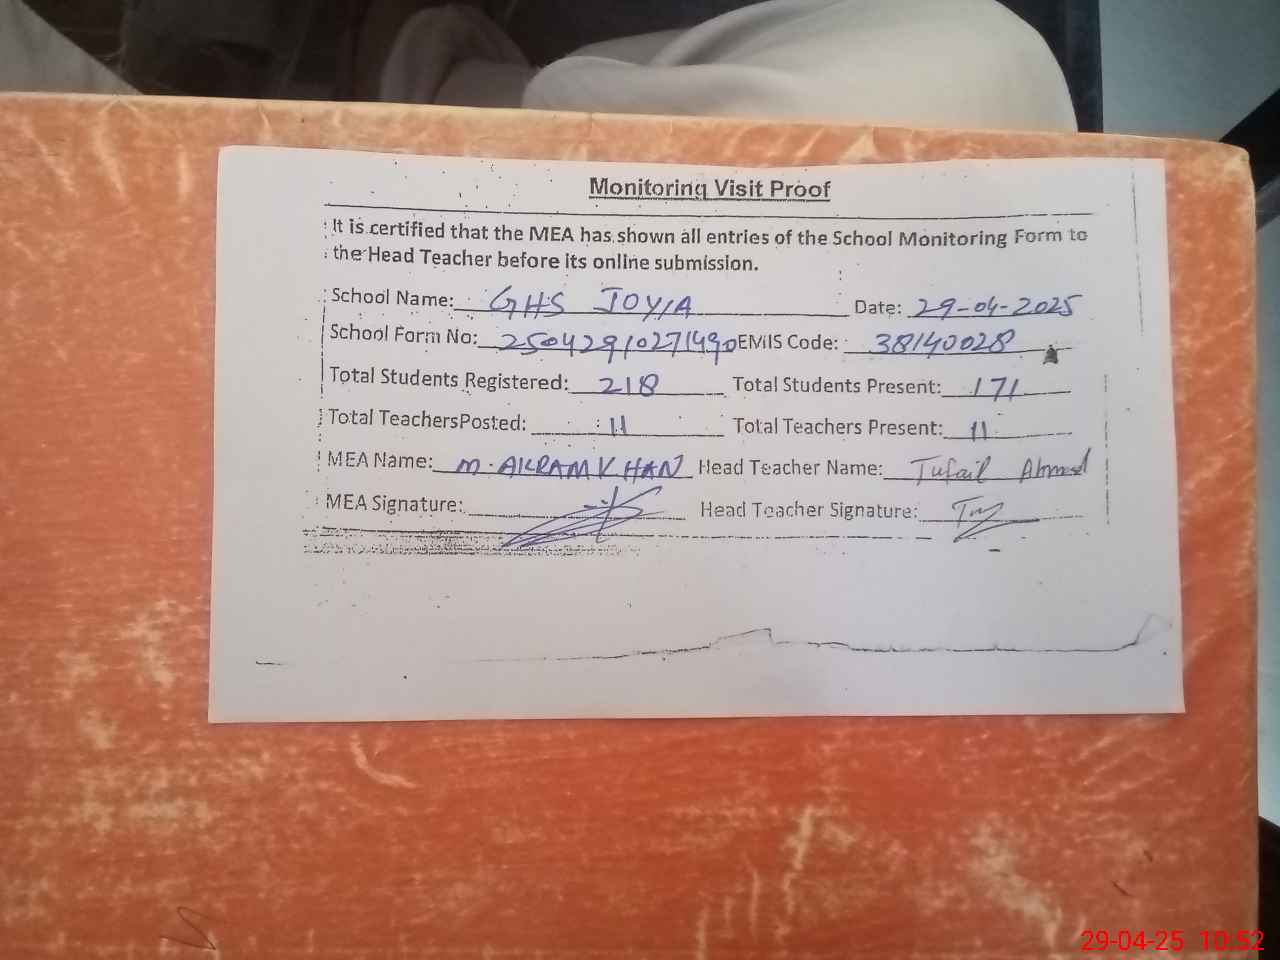 Monitoring Visit Proof
It is certified that the MEA has shown all entries of the School Monitoring Form to
the Head Teacher before its online submission.
School Name: GHS JOYIA Date: 29-04-2025
School Form No: 25042910271490 EMIS Code: 38140028
Total Students Registered: 218 Total Students Present: 171
Total TeachersPosted: 11 Total Teachers Present: 11
MEA Name: M. AKRAM KHAN Head Teacher Name: Tufail Ahmed
MEA Signature: Head Teacher Signature:
29-04-25 10:52